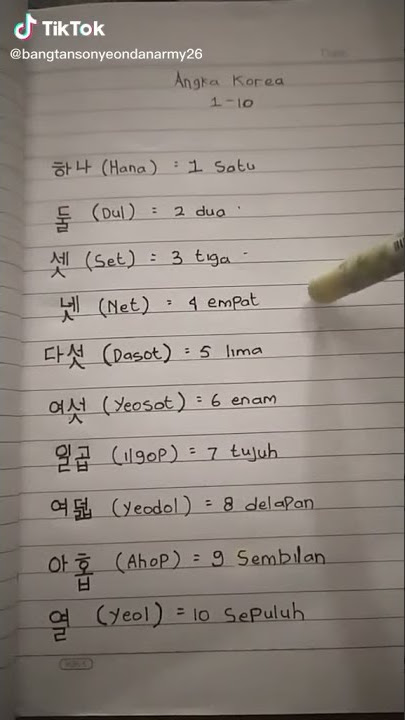 TikTok
@bangtansonyeondanarmy26
Angka Korea
1-10
하나 (Hana) = 1 Satu
둘 (Dul) = 2 dua
셋 (Set) = 3 tiga
넷 (Net) = 4 empat
다섯 (Dasot) = 5 lima
여섯 (Yeosot) = 6 enam
일곱 (ilgop) = 7 tujuh
여덟 (Yeodol) = 8 delapan
아홉 (Ahop) = 9 Sembilan
열 (Yeol) = 10 Sepuluh